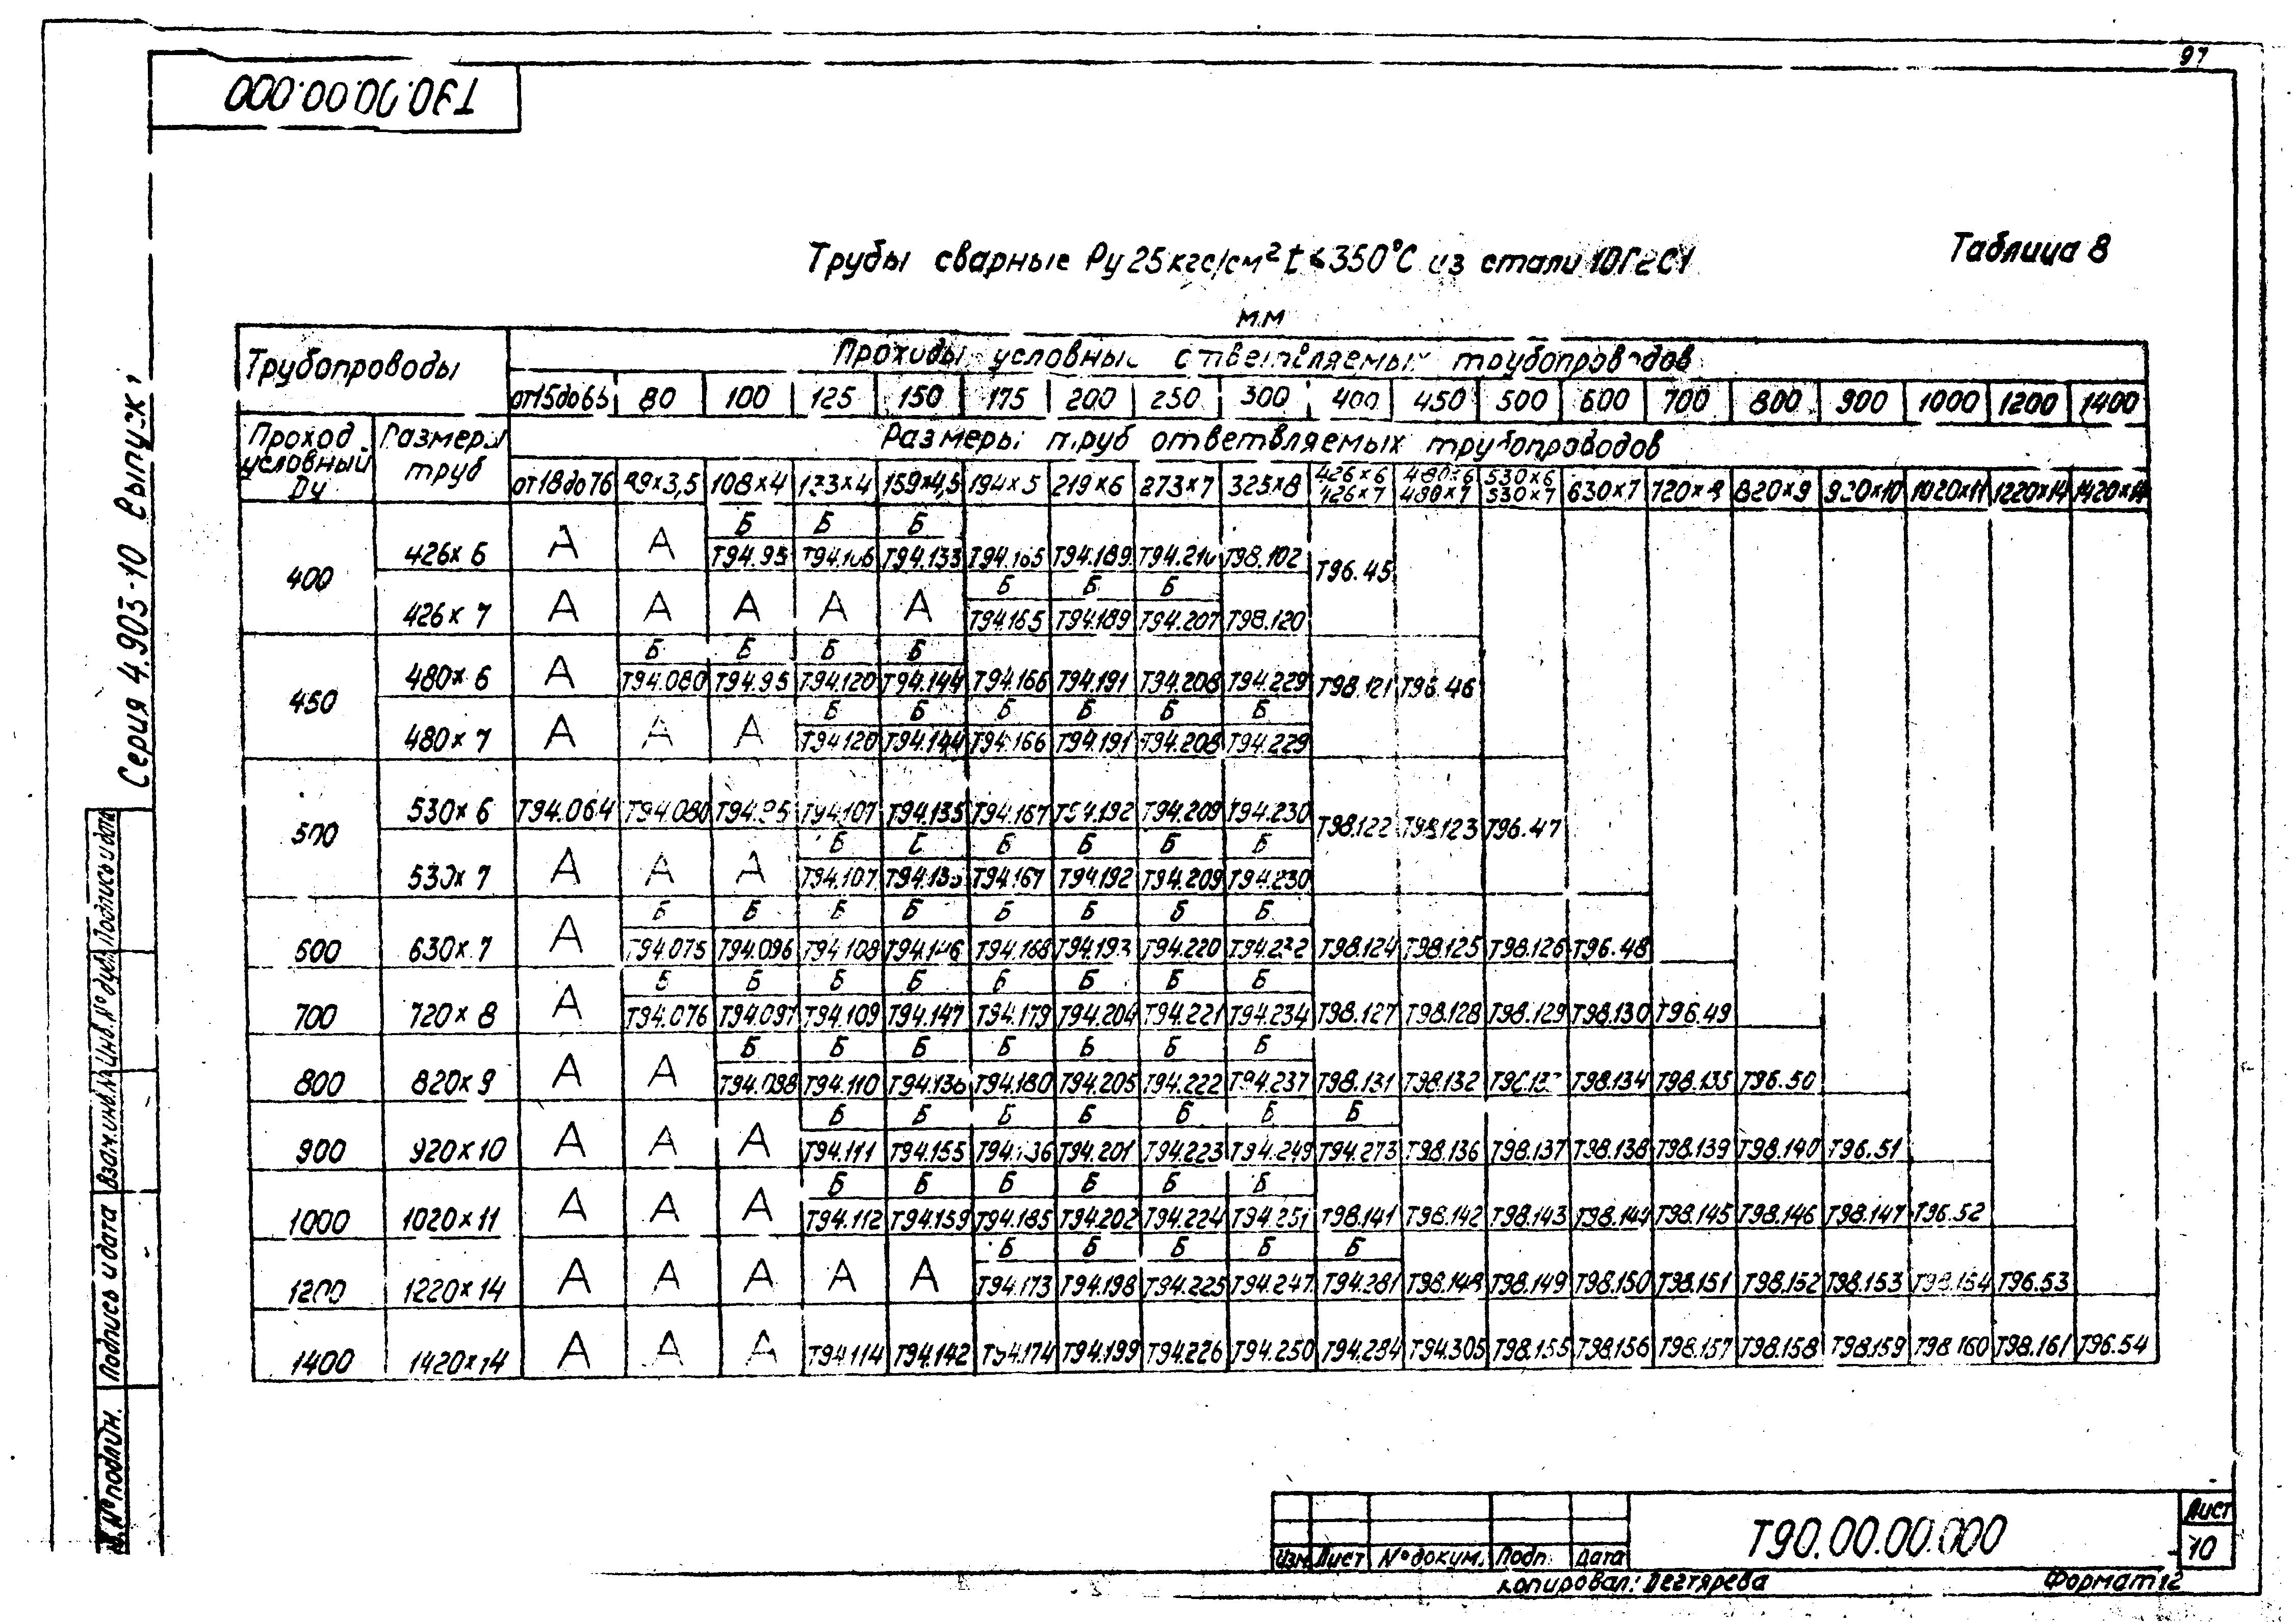 97
Т90.00.00.000
Серия 4.903-10 Выпуск 1
Таблица 8
Трубы сварные Ру 25 кгс/см² t ≤ 350°С из стали 10Г2С1
мм
Трубопроводы
Проходы условные ответвляемых трубопроводов
от 15 до 65 80 100 125 150 175 200 250 300 400 450 500 600 700 800 900 1000 1200 1400
Проход условный Ду
Размеры труб
Размеры труб ответвляемых трубопроводов
от 18 до 76 89×3,5 108×4 133×4 159×4,5 194×5 219×6 273×7 325×8 426×6 426×7 480×6 480×7 530×6 530×7 630×7 720×8 820×9 920×10 1020×11 1220×14 1420×14
Б Б Б
400 426×6 А А Т94.95 Т94.106 Т94.133 Т94.165 Т94.189 Т98.102 Т96.45
Б Б Б
426×7 А А А А А Т94.165 Т94.189 Т94.207 Т98.120
Б Б Б Б
450 480×6 А Т94.080 Т94.95 Т94.120 Т94.144 Т94.166 Т94.191 Т94.208 Т94.229 Т98.121 Т96.46
Б Б Б Б Б Б
480×7 А А А Т94.120 Т94.144 Т94.166 Т94.191 Т94.208 Т94.229
500 530×6 Т94.064 Т94.080 Т94.95 Т94.107 Т94.135 Т94.167 Т94.192 Т94.209 Т94.230 Т98.122 Т98.123 Т96.47
Б Б Б Б Б
530×7 А А А Т94.107 Т94.135 Т94.167 Т94.192 Т94.209 Т94.230
Б Б Б Б Б Б Б Б
600 630×7 А Т94.075 Т94.096 Т94.108 Т94.168 Т94.193 Т94.220 Т94.232 Т98.124 Т98.125 Т98.126 Т96.48
Б Б Б Б Б Б Б Б
700 720×8 А Т94.076 Т94.097 Т94.109 Т94.147 Т94.179 Т94.204 Т94.221 Т94.234 Т98.127 Т98.128 Т98.129 Т98.130 Т96.49
Б Б Б Б Б Б Б
800 820×9 А А Т94.098 Т94.110 Т94.136 Т94.180 Т94.205 Т94.222 Т94.237 Т98.131 Т98.132 Т98.133 Т98.134 Т98.135 Т96.50
Б Б Б Б Б Б Б
900 920×10 А А А Т94.111 Т94.155 Т94.201 Т94.223 Т94.249 Т94.273 Т98.136 Т98.137 Т98.138 Т98.139 Т98.140 Т96.51
Б Б Б Б Б Б
1000 1020×11 А А А Т94.112 Т94.159 Т94.185 Т94.202 Т94.224 Т94.251 Т98.141 Т98.142 Т98.143 Т98.144 Т98.145 Т98.146 Т98.147 Т96.52
Б Б Б Б Б
1200 1220×14 А А А А А Т94.173 Т94.198 Т94.225 Т94.247 Т94.281 Т98.148 Т98.149 Т98.150 Т98.151 Т98.152 Т98.153 Т98.154 Т96.53
1400 1420×14 А А А Т94.114 Т94.142 Т94.174 Т94.199 Т94.226 Т94.250 Т94.284 Т94.305 Т98.155 Т98.156 Т98.157 Т98.158 Т98.159 Т98.160 Т98.161 Т96.54
Подпись и дата
Инв. № дубл.
Взам. инв. №
Подпись и дата
№ подлин.
Изм. Лист № докум. Подп. Дата
Т90.00.00.000
Лист
10
Копировал: Дегтярева
Формат 12